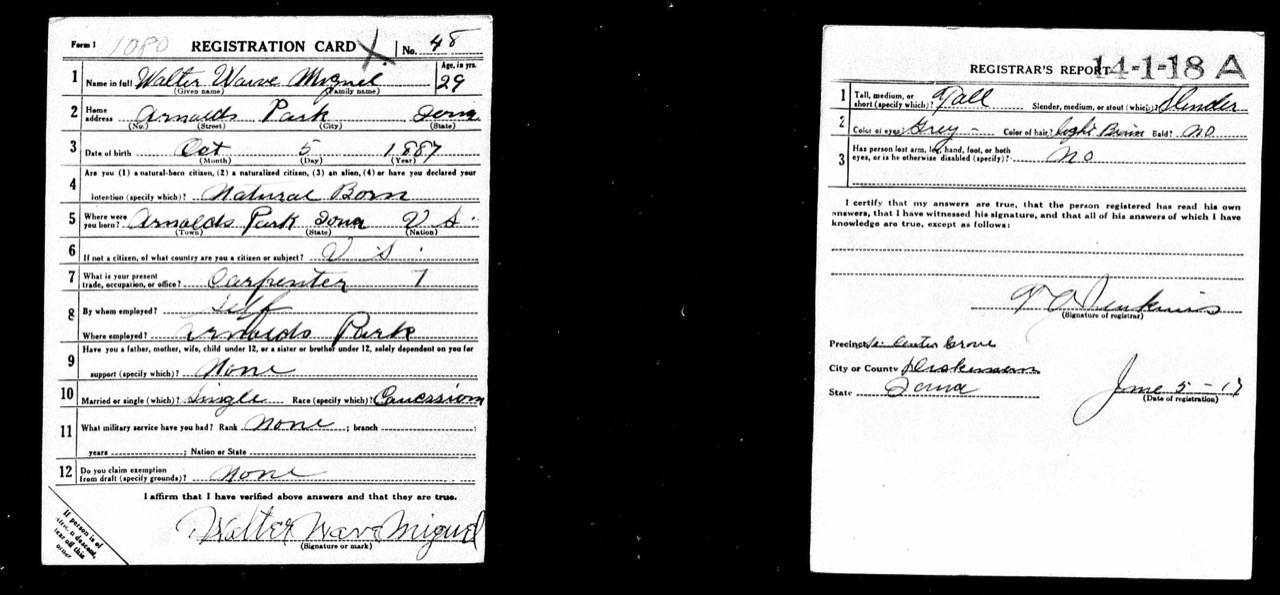 Form 1 1080 REGISTRATION CARD No. 48
1 Name in full Walter Wave Miguel Age, in yrs. 29
(Given name) (Family name)
2 Home address Arnolds Park Iowa
(No.) (Street) (City) (State)
3 Date of birth Oct 5 1887
(Month) (Day) (Year)
Are you (1) a natural-born citizen, (2) a naturalized citizen, (3) an alien, (4) or have you declared your
4 intention (specify which)? Natural Born
5 Where were you born? Arnolds Park Iowa U S
(Town) (State) (Nation)
6 If not a citizen, of what country are you a citizen or subject? U S
7 What is your present trade, occupation, or office? Carpenter 7
8 By whom employed? Self
Where employed? Arnolds Park
9 Have you a father, mother, wife, child under 12, or a sister or brother under 12, solely dependent on you for
support (specify which)? None
10 Married or single (which)? Single Race (specify which)? Caucassion
11 What military service have you had? Rank None ; branch ;
years ; Nation or State
12 Do you claim exemption from draft (specify grounds)? None
I affirm that I have verified above answers and that they are true.
Walter Wave Miguel
(Signature or mark)
If person is of
descent,
tear off this
corner
REGISTRAR'S REPORT 14-1-18 A
1 Tall, medium, or short (specify which)? Tall Slender, medium, or stout (which)? Slender
2 Color of eyes? Grey Color of hair? Light Brown Bald? No
3 Has person lost arm, leg, hand, foot, or both eyes, or is he otherwise disabled (specify)? No
I certify that my answers are true, that the person registered has read his own
answers, that I have witnessed his signature, and that all of his answers of which I have
knowledge are true, except as follows:
Jenkins
(Signature of registrar)
Precinct Center Grove
City or County Dickinson
State Iowa June 5-17
(Date of registration)